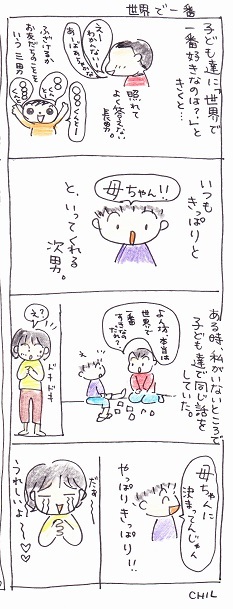 世界で一番
子ども達に「世界で
一番好きなのは?」と
きくと…
えーっ
わかんないー
あーばぁちゃん
照れて
よく答えない
長男。
○○くんとー
○○くんとー
○○くんとー
ふざけるか
お友だちのことを
いう 三男
いつも
きっぱりと
母ちゃん!!
と、いってくれる
次男。
ある時、私がいないところで
子ども達で同じ話を
していた。
よん坊 本当は
世界で
一番
すきなのだれ?
え?
ドキドキ
母ちゃんに
決まってんじゃん
やっぱりきっぱり!!
だぁ〜
うれしいよ〜♡♡
CHIL